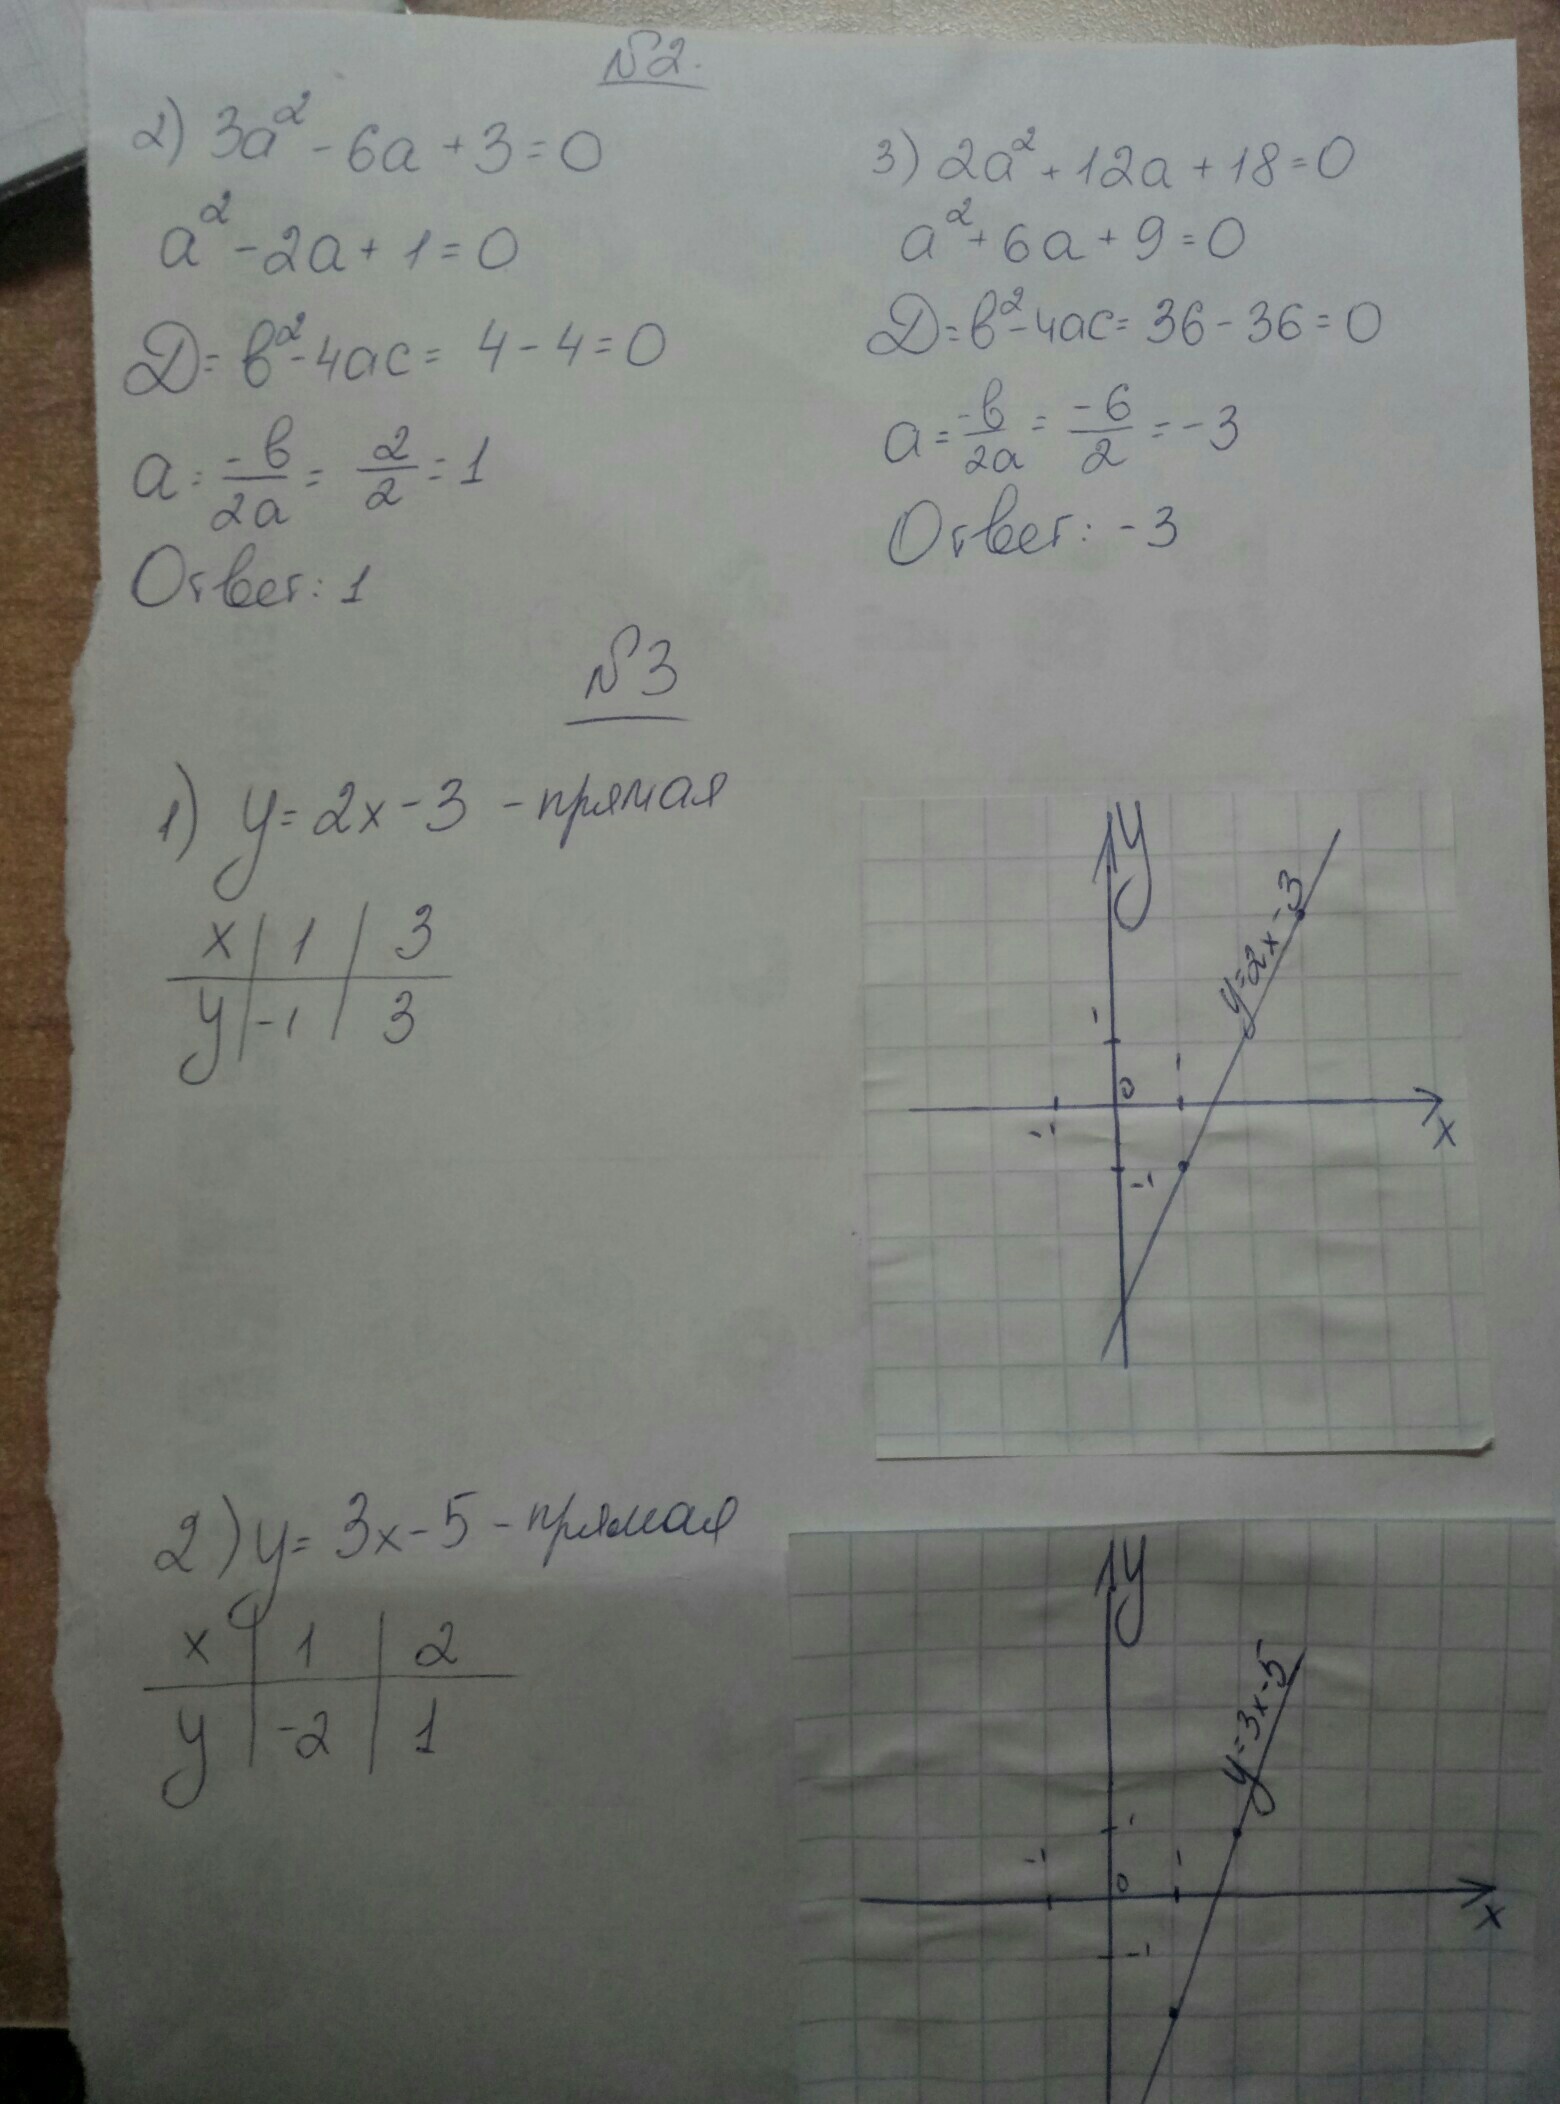 №2.
2) 3a² - 6a + 3 = 0
a² - 2a + 1 = 0
D = b² - 4ac = 4 - 4 = 0
a = -b/2a = 2/2 = 1
Ответ: 1
3) 2a² + 12a + 18 = 0
a² + 6a + 9 = 0
D = b² - 4ac = 36 - 36 = 0
a = -b/2a = -6/2 = -3
Ответ: -3
№3
1) y = 2x - 3 - прямая
x | 1 | 3
y | -1 | 3
y
y=2x-3
1
1
0
-1
x
-1
2) y = 3x - 5 - прямая
x | 1 | 2
y | -2 | 1
y
y=3x-5
1
-1
1
0
x
-1